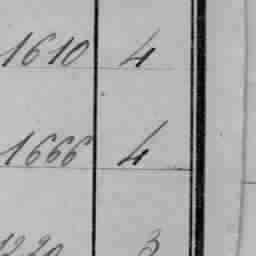 1610 4
1666 4
1220 3